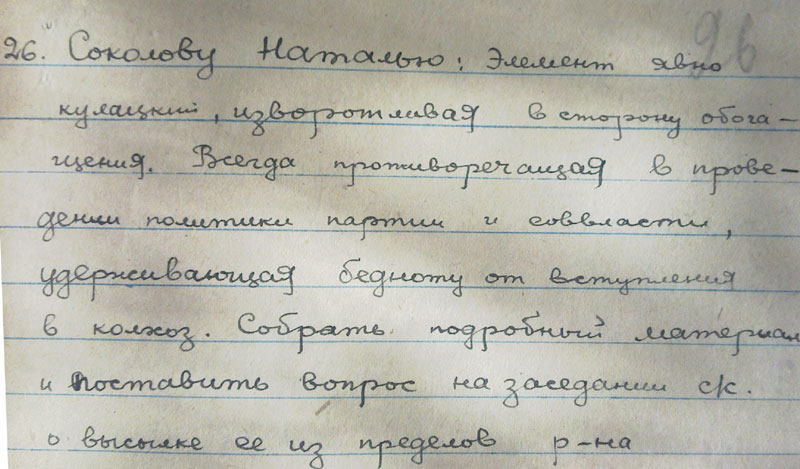 26. Соколову Наталью: Элемент явно
кулацкий, изворотливая в сторону обога-
щения. Всегда противоречащая в прове-
дении политики партии и соввласти,
удерживающая бедноту от вступления
в колхоз. Собрать подробный материал
и поставить вопрос на заседании с/с.
о высылке ее из пределов р-на